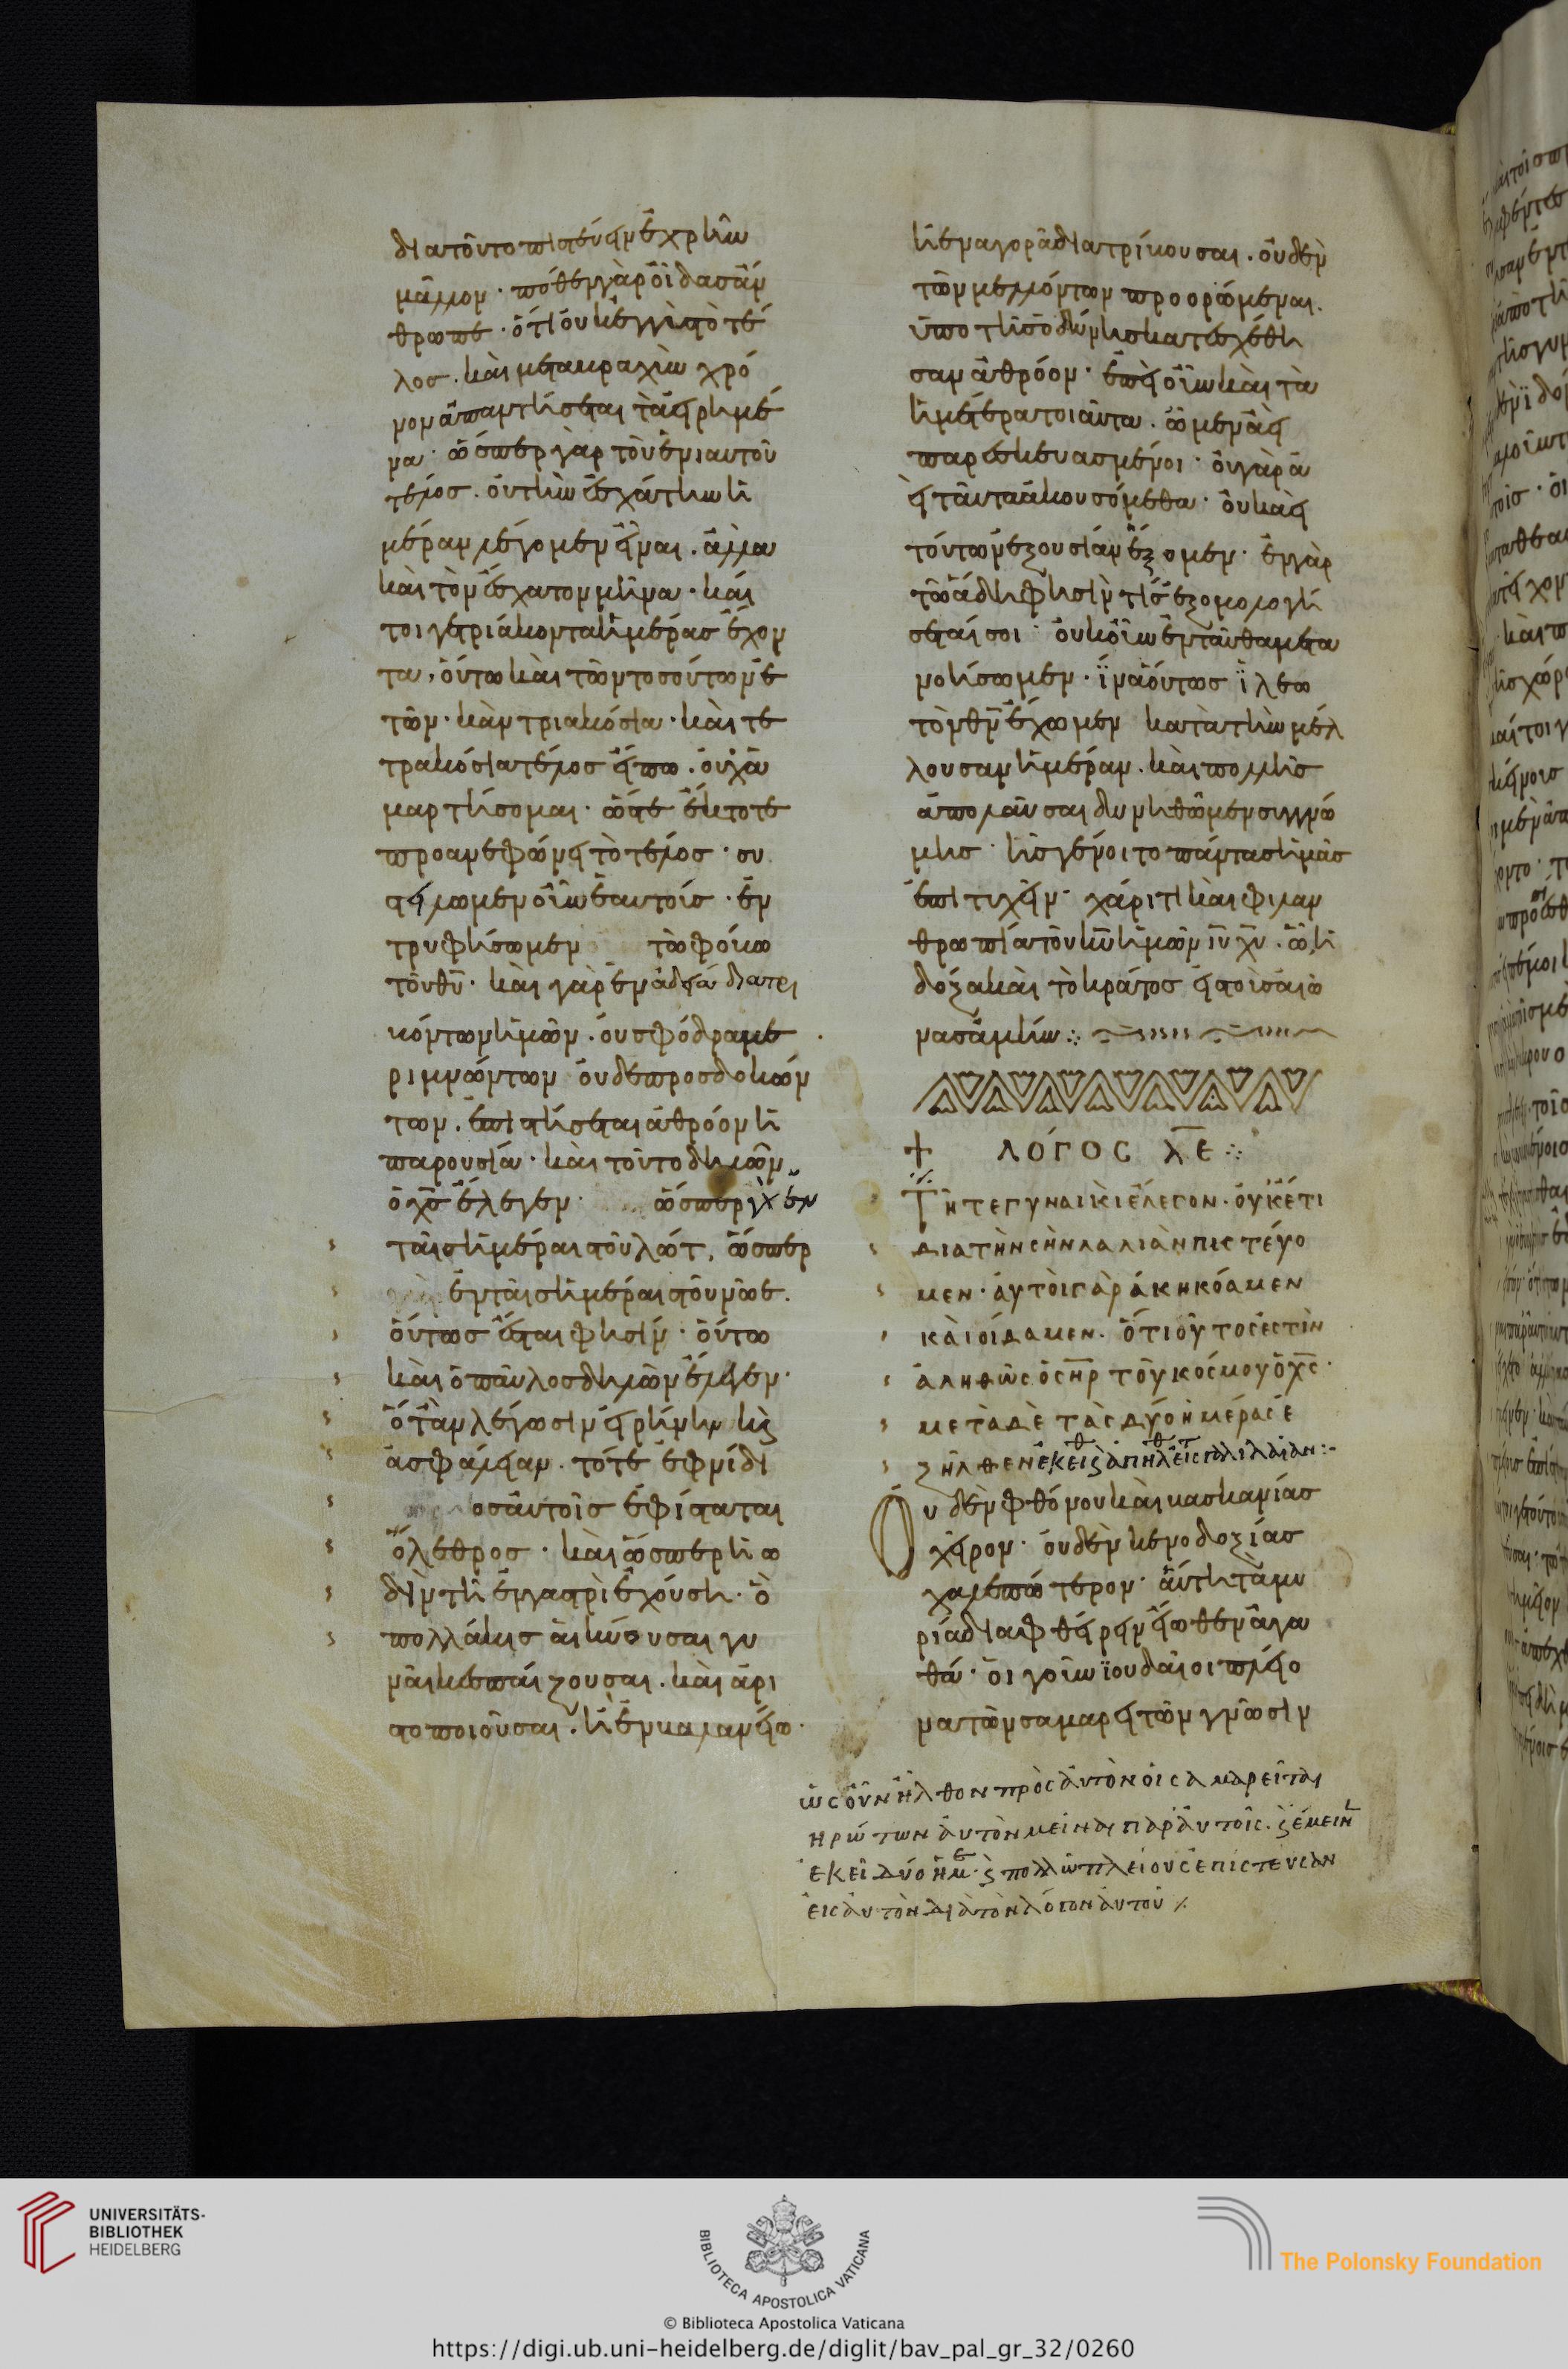 διατοῦτο πιστεύειν ἐχρῆν
μᾶλλον · πόθεν γὰρ οἶδας ἄν
θρωπε · ὅτι οὐκ ἐγγὺς τὸ τέ
λος · καὶ μετὰ βραχὺν χρό
νον ἀπαντήσεται τὰ εἰρημέ
να · ὥσπερ γὰρ τοῦ ἐνιαυτοῦ
τέλος · οὐ τὴν ἐσχάτην ἡ
μέραν λέγομεν εἶναι · ἀλλὰ
καὶ τὸν ἔσχατον μῆνα · καί
τοιγε τριάκοντα ἡμέρας ἔχον
τα · οὕτω καὶ τῶν τοσούτων ἐ
τῶν · κἂν τριακόσια · καὶ τε
τρακόσια τέλος εἴπω · οὐχ ἁ
μαρτήσομαι · ὥστε ἔκτοτε
προανεφώνει τὸ τέλος · συ
στείλωμεν οὖν ἑαυτοὺς · ἐν
τρυφήσωμεν τῷ φόβῳ
τοῦ θῦ · καὶ γὰρ ἐν ἀδεία διατρι
βόντων ἡμῶν · οὐ σφόδρα με
ριμνώντων οὐδὲ προσδοκών
των · ἐπιστήσεται ἀθρόον ἡ
παρουσία · καὶ τοῦτο δηλῶν
ὁ χς ἔλεγεν · ὥσπερ γὰρ ἐν
ταῖς ἡμέραις τοῦ λώτ, ὥσπερ
ἐν ταῖς ἡμέραις τοῦ νῶε ·
οὕτως ἔσται φησίν · οὕτω
καὶ ὁ παῦλος δηλῶν ἔλεγεν ·
ὅταν λέγωσιν εἰρήνην κς
ἀσφάλειαν · τότε ἐφνίδι
ος αὐτοῖς ἐφίσταται
ὄλεθρος · καὶ ὥσπερ ἡ ὠ
δὶν τῇ ἐν γαστρὶ ἐχούσῃ · ὃ
πολλάκις αἱ κύουσαι γυ
ναῖκες παίζουσαι · καὶ ἀρι
στοποιοῦσαι · ἢ ἐν βαλανείω ·
ἢ ἐν ἀγορᾶ διατρίβουσαι · οὐδὲν
τῶν μελλόντων προορώμεναι ·
ὑπὸ τῆς ὀδύνης κατεσχέθη
σαν ἀθρόον · ἐπεὶ οὖν καὶ τὰ
ἡμέτερα τοιαῦτα · ὦμεν ἀεὶ
παρεσκευασμένοι · οὐ γὰρ ἀ
εὶ ταῦτα ἀκουσόμεθα · οὐκ ἀεὶ
τούτων ἐξουσίαν ἕξομεν · ἐν γὰρ
τῶ ἅδη φησὶν τίς ἐξομολογή
σεταί σοι · οὐκοῦν ἐνταῦθα μετα
νοήσωμεν · ἵνα οὕτως ἵλεω
τὸν θν ἔχωμεν κατὰ τὴν μέλ
λουσαν ἡμέραν · καὶ πολλῆς
ἀπολαῦσαι δυνηθῶμεν συγγνώ
μης · ἧς γένοιτο πάντας ἡμᾶς
ἐπιτυχεῖν · χάριτι καὶ φιλαν
θρωπία τοῦ κυ ἡμῶν ιυ χυ · ὧ ἡ
δόξα καὶ τὸ κράτος εἰς τοὺς αἰῶ
νας ἀμήν ⁘
+ ΛΟΓΟΣ ΛΕ ⁘
Τῆ τε γυναικὶ ἔλεγον · οὐκέτι
διὰ τὴν σὴν λαλιὰν πιστεύο
μεν · αὐτοὶ γὰρ ἀκηκόαμεν
καὶ οἴδαμεν · ὅτι οὗτος ἐστὶν
ἀληθῶς ὁ σηρ τοῦ κόσμου ὁ χς ·
μετὰ δὲ τὰς δύο ἡμέρας ἐ
ξῆλθεν ἐκεῖθ ς ἀπῆλθ εἰς τ γαλιλαίαν :-
Οὐδὲν φθόνου καὶ βασκανίας
χεῖρον · οὐδὲν κενοδοξίας
χαλεπώτερον · αὕτη τὰ μυ
ρία διαφθείρειν εἴωθεν ἀγα
θά · οἱ γοῦν ἰουδαῖοι πλείο
να τῶν σαμαρειτῶν γνῶσιν
ὡς οὖν ἦλθον πρὸς αὐτὸν οἱ σαμαρεῖται
ἠρώτων αὐτὸν μεῖναι παρ' αὐτοῖς · ς ἔμειν
ἐκεῖ δύο ἡμε · ς πολλῶ πλείους ἐπίστευσαν
εἰς αὐτὸν διὰ τὸν λόγον αὐτοῦ ⁒
UNIVERSITÄTS-
BIBLIOTHEK
HEIDELBERG
BIBLIOTECA APOSTOLICA VATICANA
The Polonsky Foundation
© Biblioteca Apostolica Vaticana
https://digi.ub.uni-heidelberg.de/diglit/bav_pal_gr_32/0260